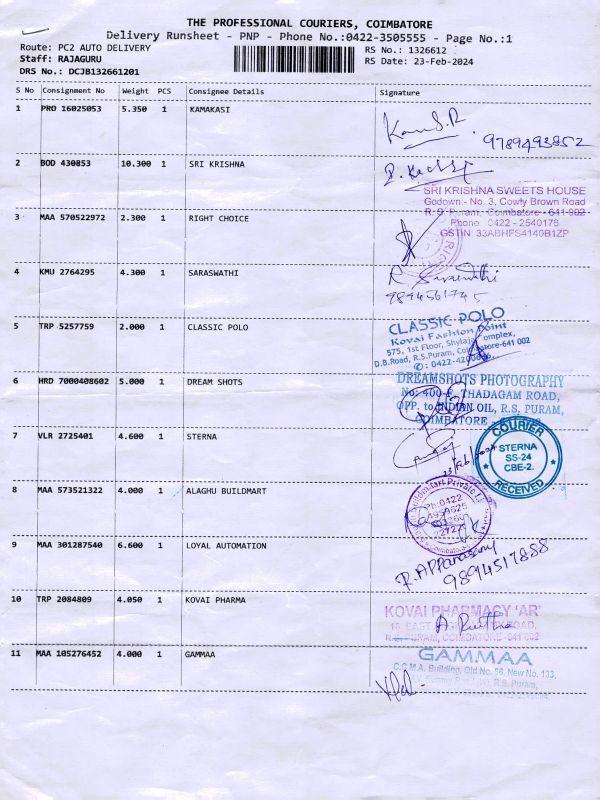 THE PROFESSIONAL COURIERS, COIMBATORE
Delivery Runsheet - PNP - Phone No.:0422-3505555 - Page No.:1
Route: PC2 AUTO DELIVERY RS No.: 1326612
Staff: RAJAGURU RS Date: 23-Feb-2024
DRS No.: DCJB132661201
S No Consignment No Weight PCS Consignee Details Signature
1 PRO 16025053 5.350 1 KAMAKASI
9789493852
2 BOD 430853 10.300 1 SRI KRISHNA
SRI KRISHNA SWEETS HOUSE
Godown.- No. 3, Cowly Brown Road
R. S. Puram, Coimbatore - 641 002
Phone 0422 - 2540178
GSTIN: 33ABHFS4140B1ZP
3 MAA 570522972 2.300 1 RIGHT CHOICE
4 KMU 2764295 4.300 1 SARASWATHI
9894561745
5 TRP 5257759 2.000 1 CLASSIC POLO
CLASSIC POLO
Kovai Fashion Point
575, 1st Floor, Shylaja Complex,
D.B.Road, R.S.Puram, Coimbatore-641 002
6 HRD 7000408602 5.000 1 DREAM SHOTS
DREAMSHOTS PHOTOGRAPHY
No: 400-F, THADAGAM ROAD,
OPP. to INDIAN OIL, R.S, PURAM,
COIMBATORE
7 VLR 2725401 4.600 1 STERNA
COURIER
STERNA
SS-24
CBE-2.
RECEIVED
8 MAA 573521322 4.000 1 ALAGHU BUILDMART
Buildmart Private
Ph:0422
9 MAA 301287540 6.600 1 LOYAL AUTOMATION
9894517888
10 TRP 2084809 4.050 1 KOVAI PHARMA
KOVAI PHARMACY 'AR'
ROAD,
PURAM, COIMBATORE -641 002
11 MAA 105276452 4.000 1 GAMMAA
GAMMAA
C.C.M.A. Building, Old No. 96, New No. 133,
R.S. Puram,